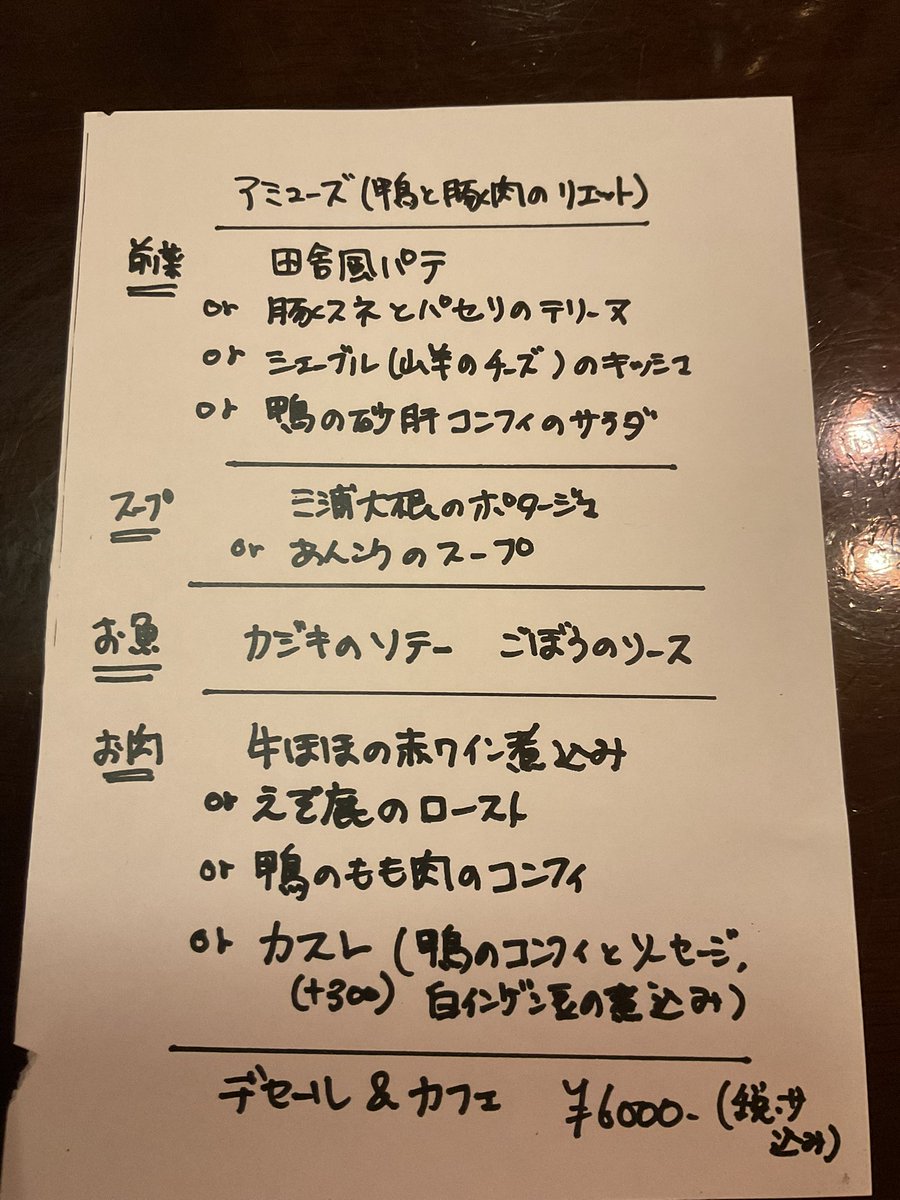 アミューズ(鴨と豚肉のリエット)
前菜 田舎風パテ
or 豚スネとパセリのテリーヌ
or シェーブル(山羊のチーズ)のキッシュ
or 鴨の砂肝コンフィのサラダ
スープ 三浦大根のポタージュ
or あんこうのスープ
お魚 カジキのソテー ごぼうのソース
お肉 牛ほほの赤ワイン煮込み
or えぞ鹿のロースト
or 鴨のもも肉のコンフィ
or カスレ(鴨のコンフィとソーセージ,
(+300) 白インゲン豆の煮込み)
デセール & カフェ ¥6000-(税・サ
込み)